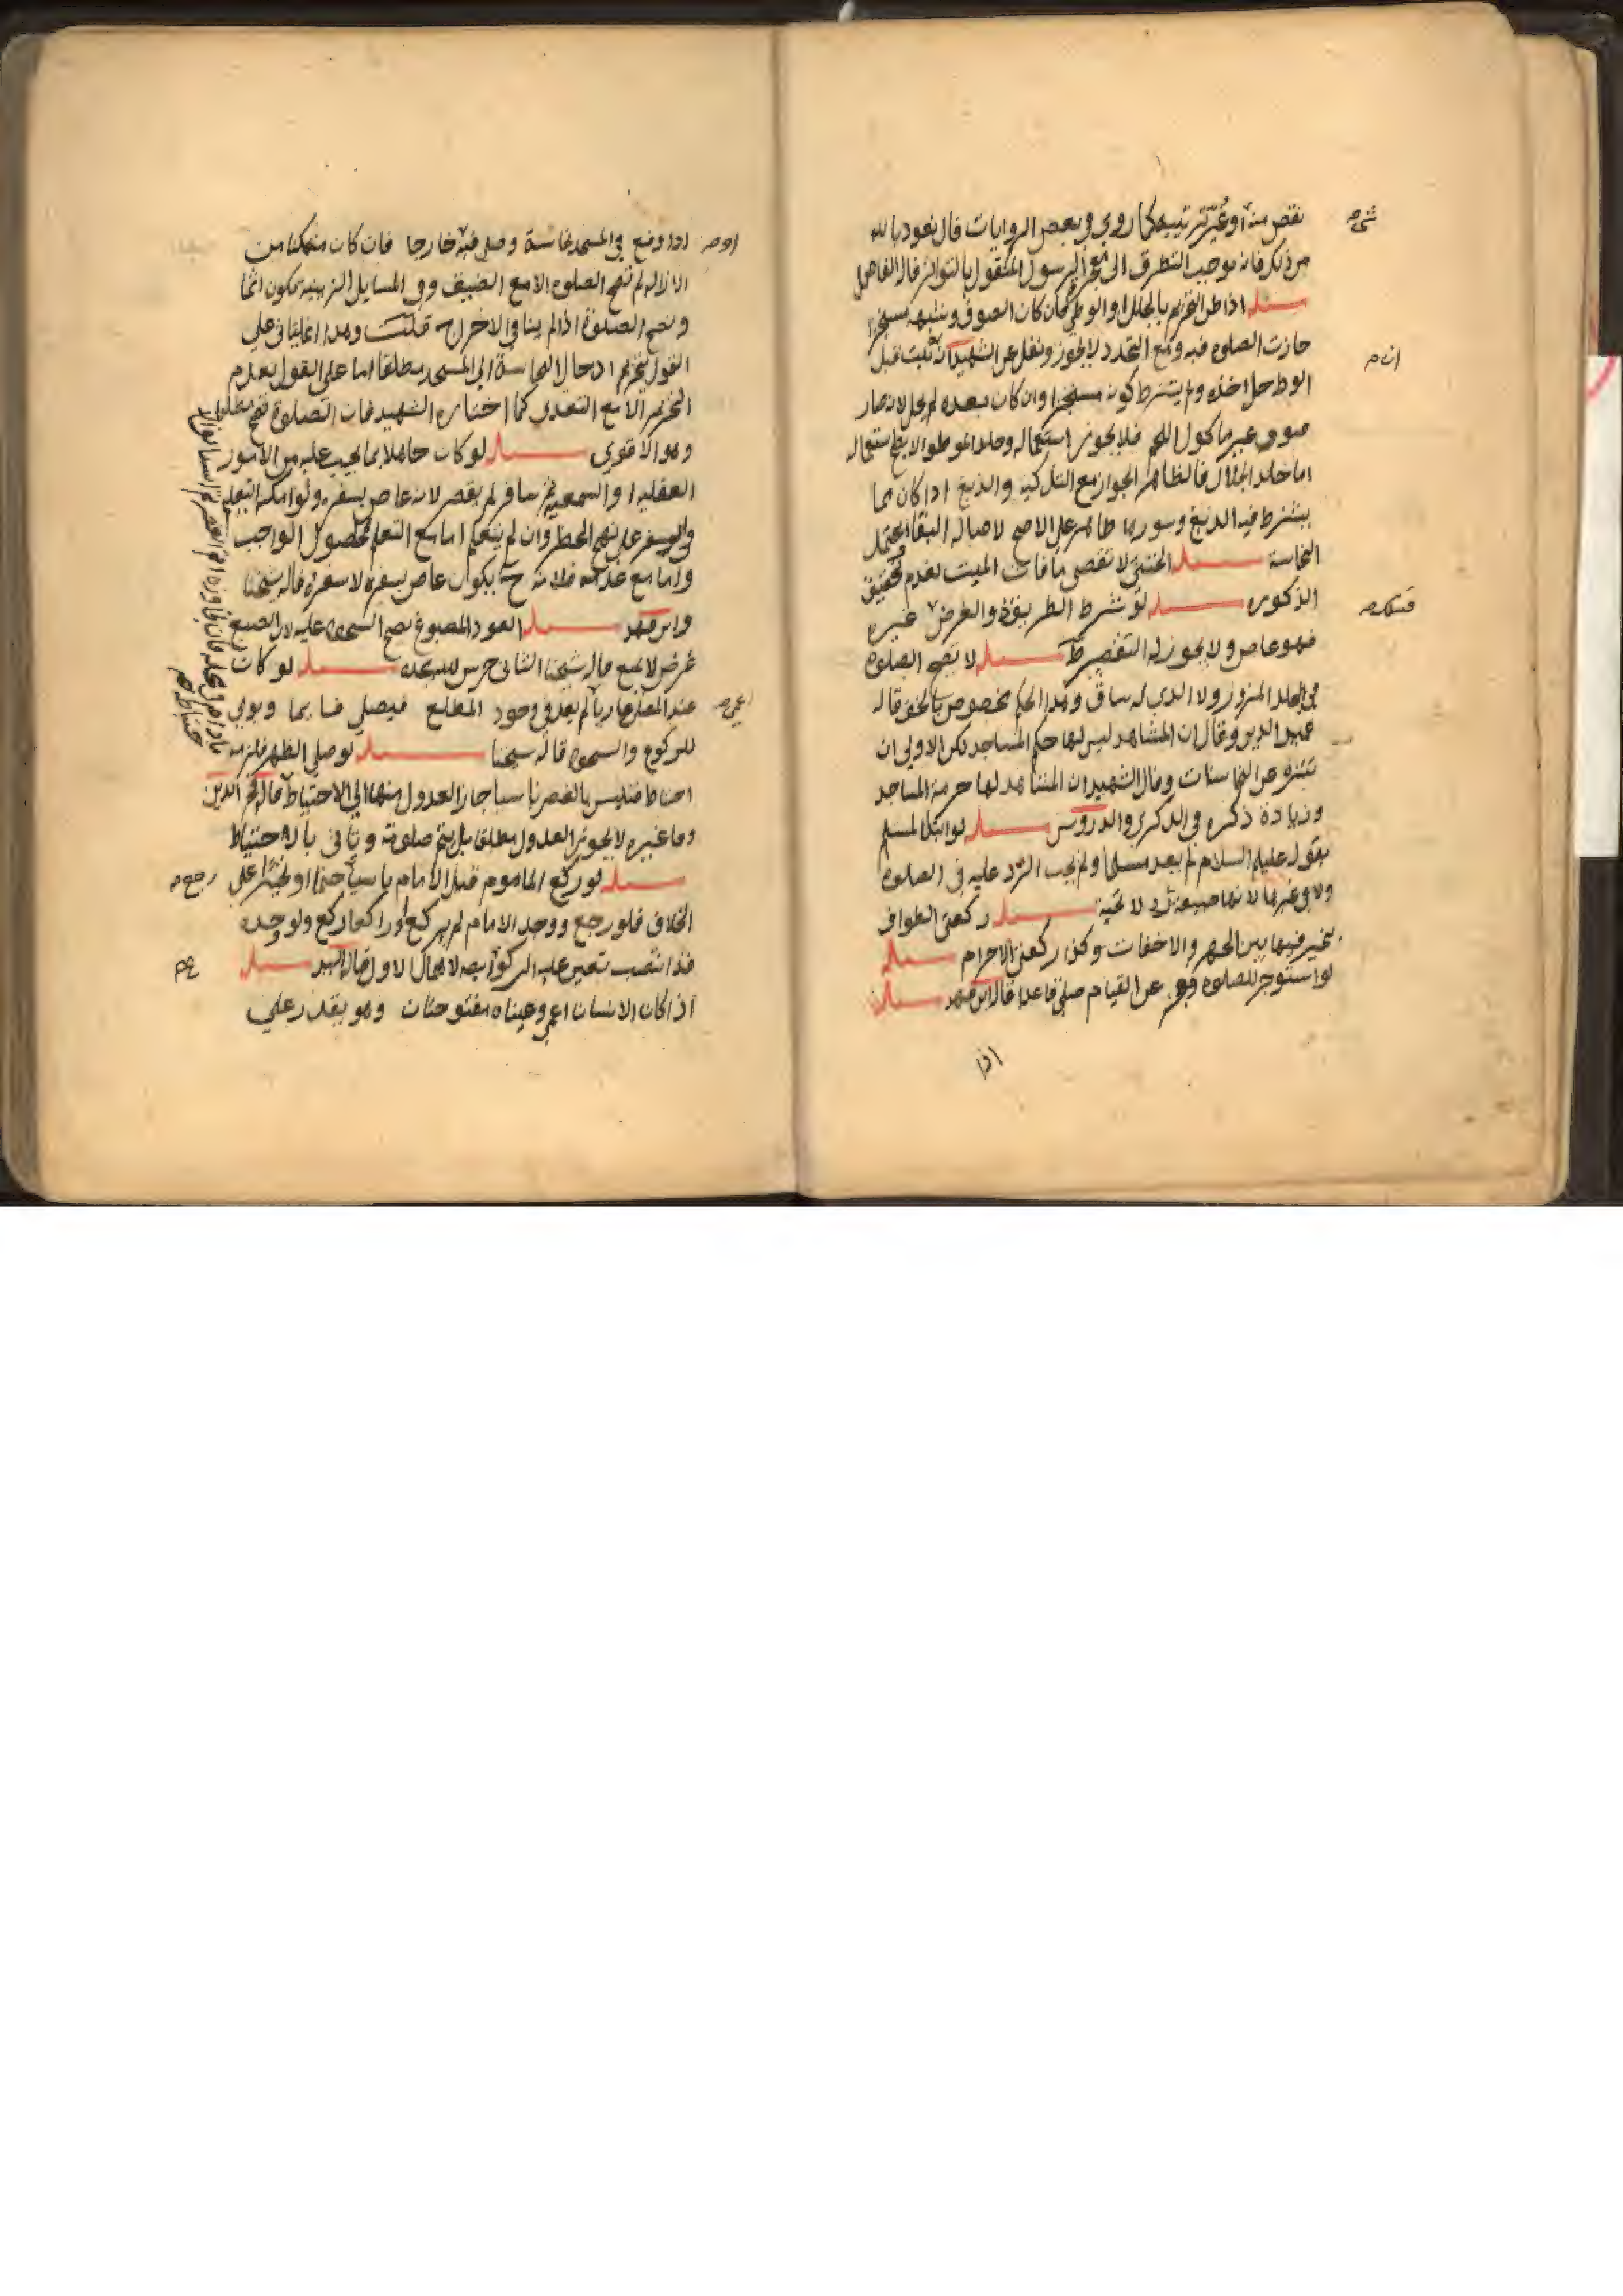 نقص منه او غير ترتيبه كما روى في بعض الروايات قال نعوذ بالله
من ذلك فانه يوجب التطرق الى معجز الرسول المنقول بالتواتر قاله الفاضل
مسئلة اذا طرا التحريم بالجلل او الوطي فان كان الصوف وشبهه مستجزا
جازت الصلوة فيه ومع التجدد لا يجوز ونقل عن الشهيد انه ثبت قبل
الوطي حل اخذه ولم يشترط كونه مستجزا وان كان بعده لم يحل لانه صار
صوف غير ماكول اللحم فلا يجوز استعماله وجلد الموطو الايصح استعماله
اما جلد الجلال فالظاهر الجواز مع التذكية والدبغ اذا كان مما
يشترط فيه الدبغ وسورها طاهر على الاصح لاصالة البقا ويحتمل
النجاسة مسئلة الخنثى لا تقضي ما فات الميت لعدم تحقيق
الذكورة مسئلة لو شرط الطريق والغرض غيره
فهو عاص ولا يجوز له التقصير مسئلة لا تصح الصلوة
في الجلد المزرور ولا الذي له ساق وهذا الحكم مخصوص بالخف قاله
عميد الدين وقال ان المشاهد ليس لها حكم المساجد لكن الاولى ان
تنزه عن النجاسات وقال الشهيد ان المشاهد لها حرمة المساجد
وزيادة ذكره في الذكرى والدروس مسئلة لو ابتدا المسلم
بقول عليكم السلام لم يعد مسلما ولم يجب الرد عليه في الصلوة
ولا في غيرها لانها صيغة رد لا تحية مسئلة ركعتي الطواف
يتخير فيها بين الجهر والاخفات وكذا ركعتي الاحرام مسئلة
لو استوجر للصلوة فعجز عن القيام صلى قاعدا قاله ابن فهد مسئلة
اذا
اذا وضع في المسجد نجاسة وصلى فيه خارجا فان كان متمكنا من
الازالة لم تصح الصلوة الا مع الضيق وفي المسايل الزينبيه يكون اثما
وتصح الصلوة اذا لم يناف الاخراج قلت وهذا انما يتاتى على
القول بتحريم ادخال النجاسة الى المسجد مطلقا اما على القول بعدم
التحريم الا مع التعدي كما اختاره الشهيد فان الصلوة تصح مطلقا
وهو الاقوى مسئلة لو كان جاهلا بما يجب عليه من الامور
العقلية او السمعية ثم سافر لم يقصر لانه عاص بسفره ولو امكنه التعلم
في السفر على نهج الحضر وان لم يتعلم اما مع التعلم لحصول الواجب
واما مع عدمه فلانه ح يكون عاص بسفره لا سفره قاله شيخنا
وابن فهد مسئلة العود المصبوغ يصح السجود عليه لان الصبغ
عرض لا يمنع قاله شيخنا الثاني حرس الله مجده مسئلة لو كان
عند المصلي عاريا لم يعد في وجود المطلع فيصلي قائما ويومي
للركوع والسجود قاله شيخنا مسئلة لو صلى الظهر فلزمه
احتياط فتلبس بالعصر ناسيا جاز العدول منها الى الاحتياط قاله فخر الدين
وما غيره لا يجوز العدول مطلقا بل يتم صلوته وياتي بالاحتياط
مسئلة لو ركع الماموم قبل الامام ناسيا رجع حتما او تخييرا على
الخلاف فلو رجع ووجد الامام لم يركع او راكعا ركع ولو وجده
قد انتصب تعين عليه الركوع بعد لاهمال الاول قاله السيد مسئلة
اذا كان الانسان اعمى وعيناه مفتوحتان وهو يقدر على